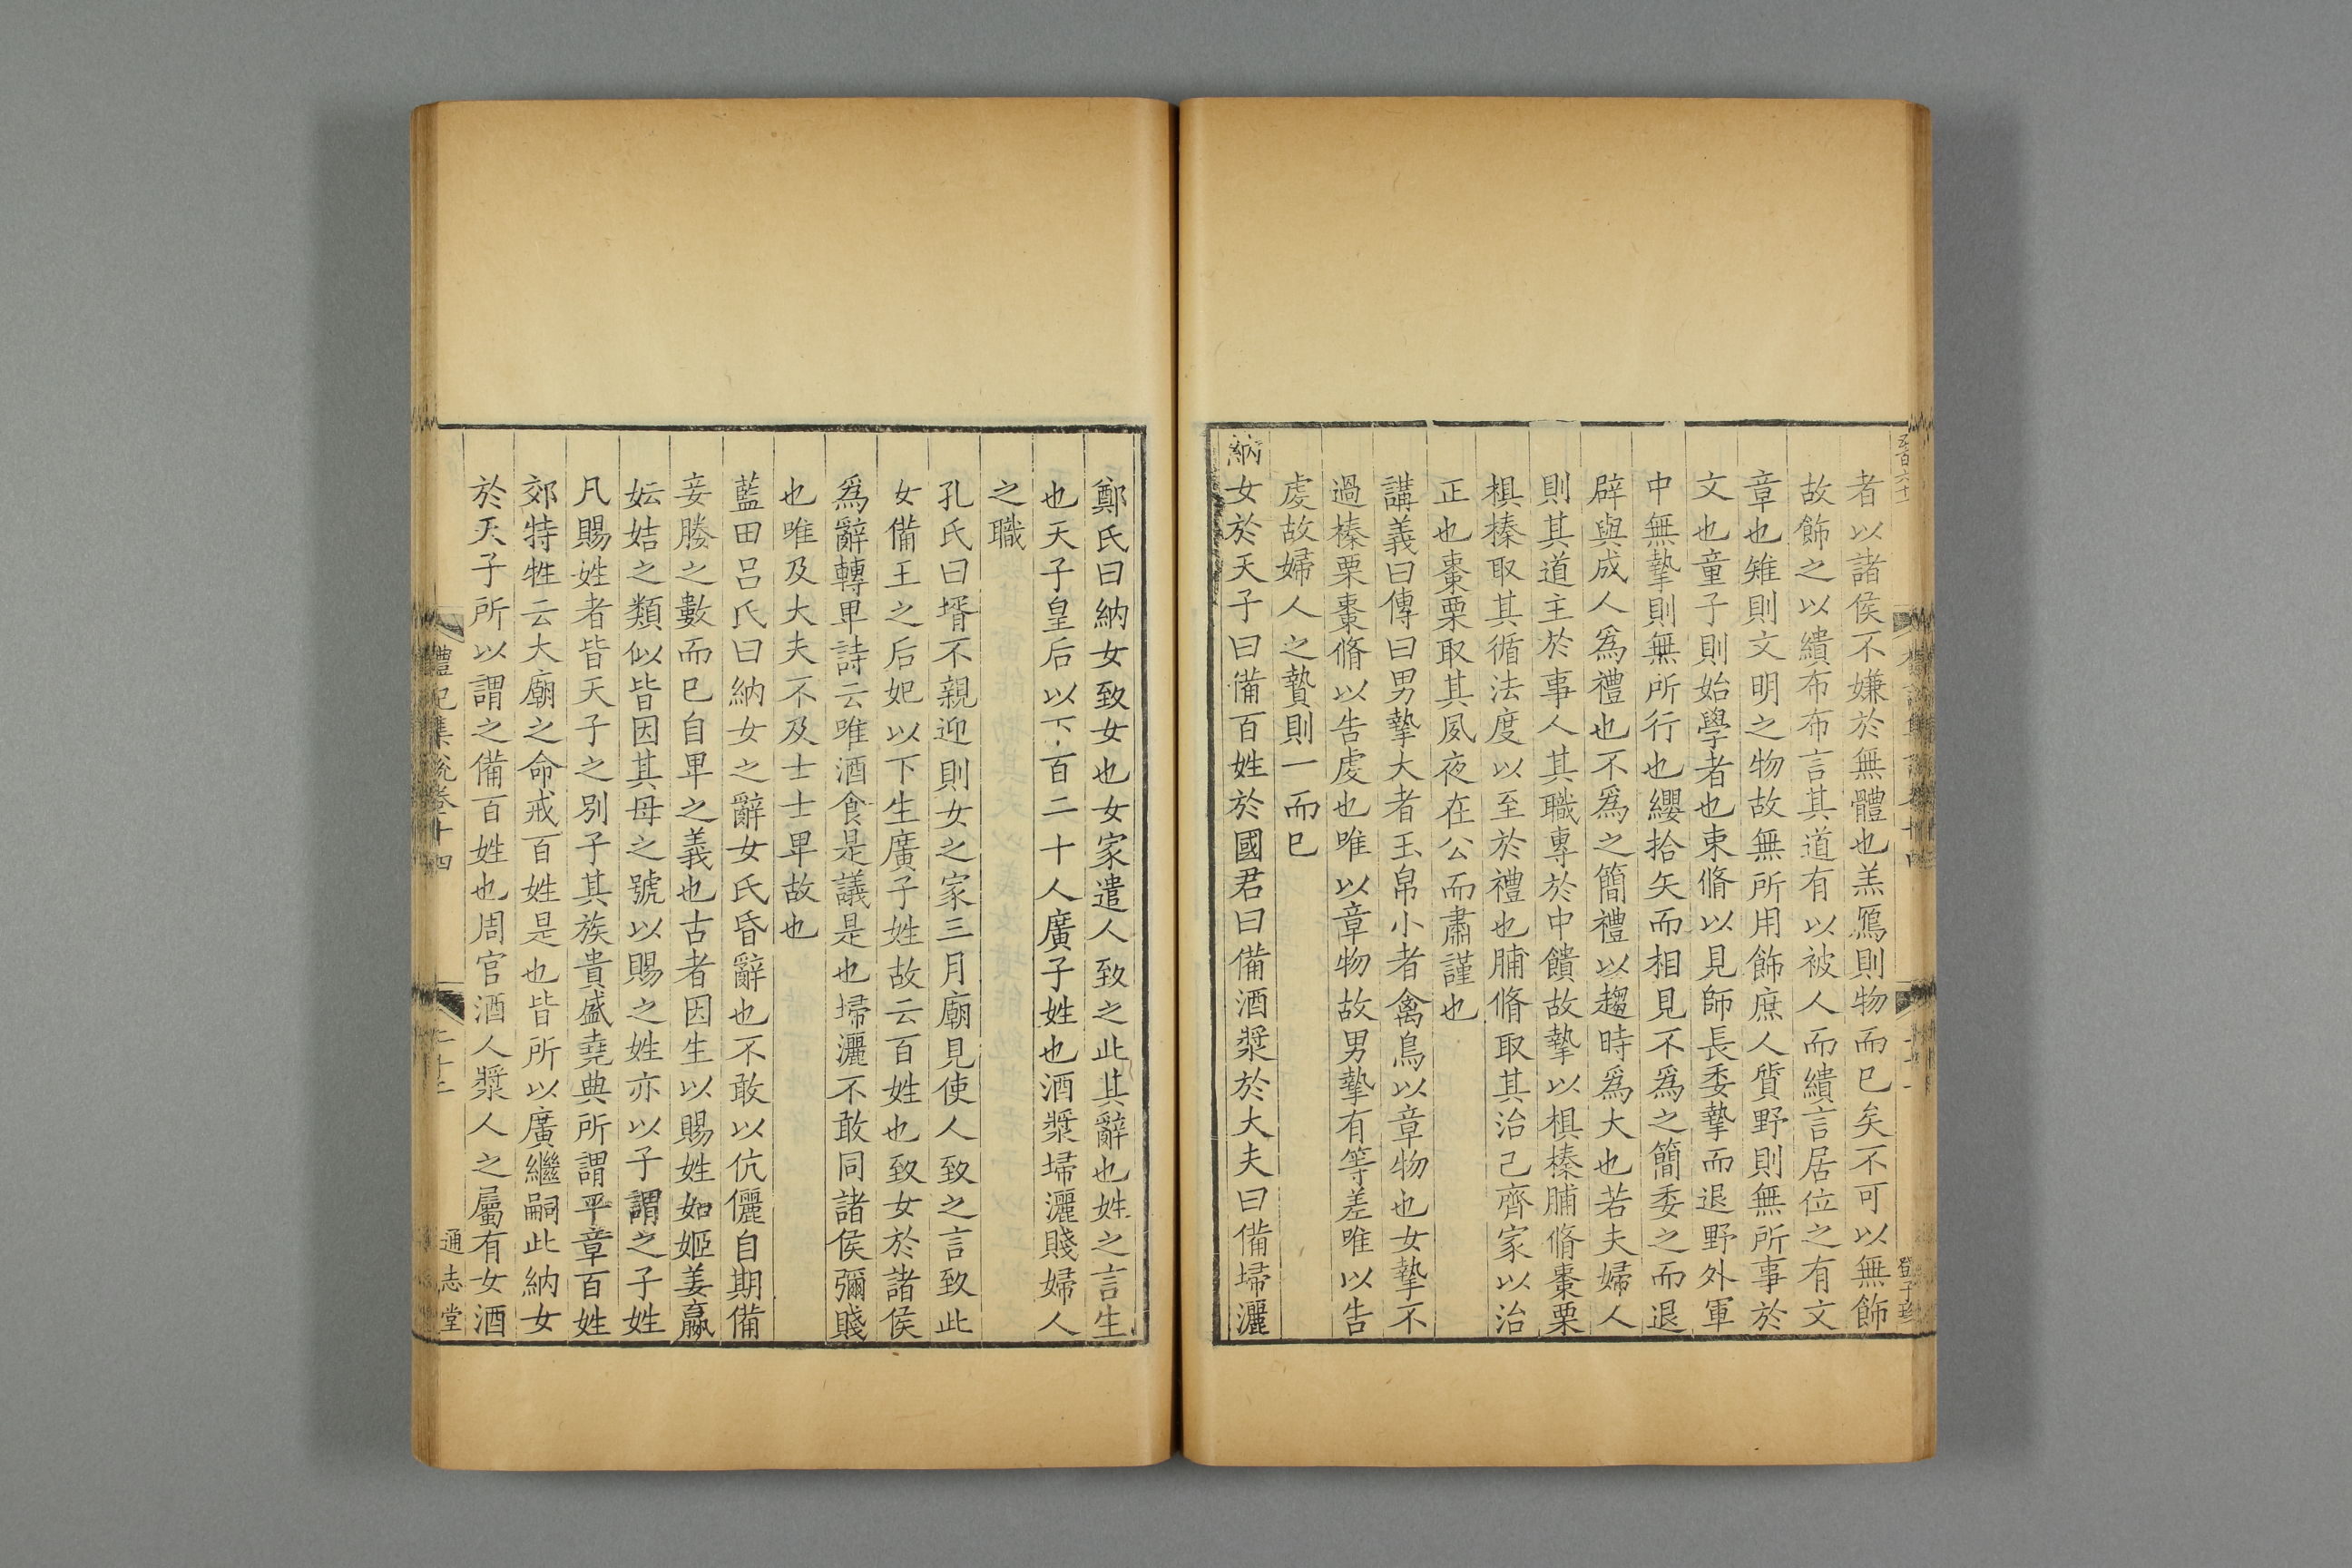 者以諸侯不嫌於無體也羔鴈則物而已矣不可以無飾
故飾之以繢布布言其道有以被人而繢言居位之有文
章也雉則文明之物故無所用飾庶人質野則無所事於
文也童子則始學者也束脩以見師長委摯而退野外軍
中無摯則無所行也纓拾矢而相見不爲之簡委之而退
辟與成人爲禮也不爲之簡禮以趨時爲大也若夫婦人
則其道主於事人其職專於中饋故摯以椇榛脯脩棗栗
椇榛取其循法度以至於禮也脯脩取其治己齊家以治
正也棗栗取其夙夜在公而肅謹也
講義曰傳曰男摯大者玉帛小者禽鳥以章物也女摯不
過榛栗棗脩以告虔也唯以章物故男摯有等差唯以告
虔故婦人之贄則一而已
納女於天子曰備百姓於國君曰備酒漿於大夫曰備埽灑
鄭氏曰納女致女也女家遣人致之此其辭也姓之言生
也天子皇后以下百二十人廣子姓也酒漿埽灑賤婦人
之職
孔氏曰壻不親迎則女之家三月廟見使人致之言致此
女備王之后妃以下生廣子姓故云百姓也致女於諸侯
爲辭轉卑詩云唯酒食是議是也埽灑不敢同諸侯彌賤
也唯及大夫不及士士卑故也
藍田呂氏曰納女之辭女氏昏辭也不敢以伉儷自期備
妾媵之數而已自卑之義也古者因生以賜姓如姬姜嬴
妘姞之類似皆因其母之號以賜之姓亦以子謂之子姓
凡賜姓者皆天子之別子其族貴盛堯典所謂平章百姓
郊特牲云大廟之命戒百姓是也皆所以廣繼嗣此納女
於天子所以謂之備百姓也周官酒人漿人之屬有女酒
禮記集說卷十四
通志堂